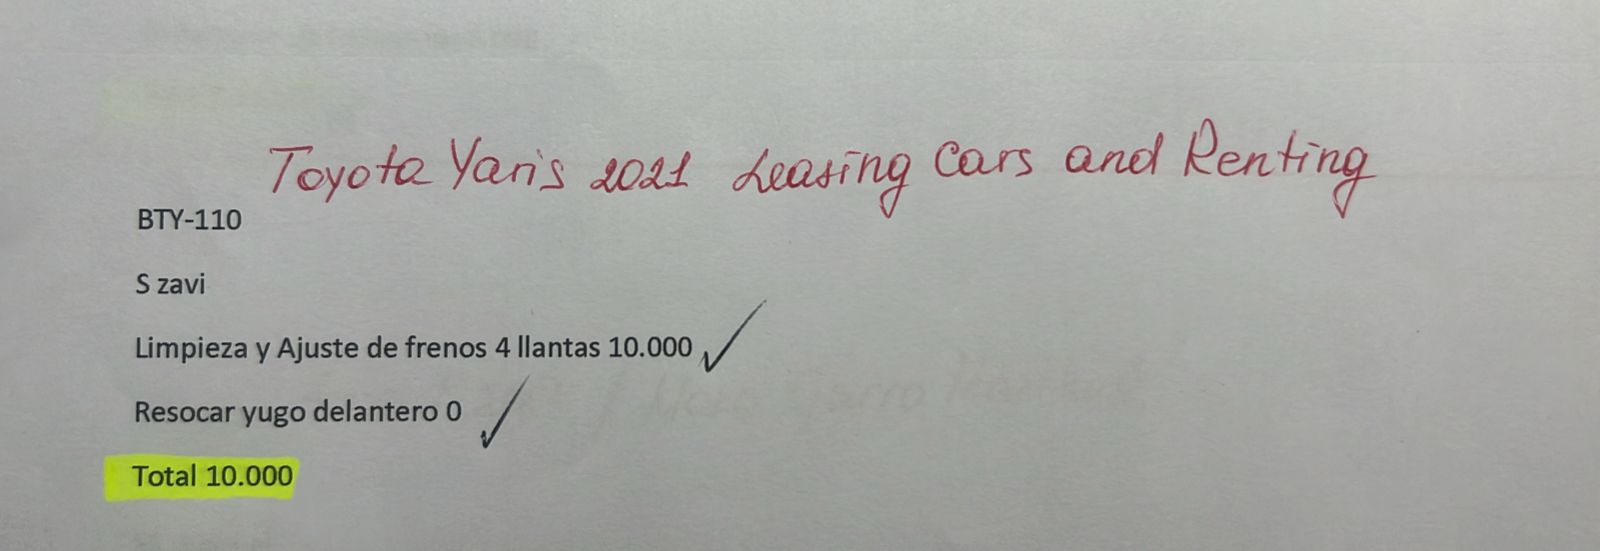 Toyota Yaris 2021 Leasing Cars and Renting
BTY-110
S zavi
Limpieza y Ajuste de frenos 4 llantas 10.000
Resocar yugo delantero 0
Total 10.000